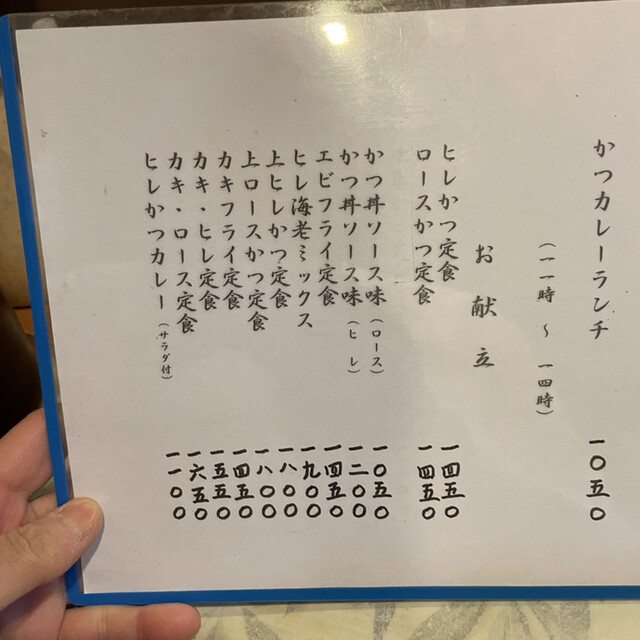 かつカレーランチ 一〇五〇
(一一時 〜 一四時)
お献立
ヒレかつ定食 一四五〇
ロースかつ定食 一四五〇
かつ丼ソース味(ロース) 一〇五〇
かつ丼ソース味(ヒレ) 一二〇〇
エビフライ定食 一四五〇
ヒレ海老ミックス 一九〇〇
上ヒレかつ定食 一八〇〇
上ロースかつ定食 一八〇〇
カキフライ定食 一四五〇
カキ・ヒレ定食 一五五〇
カキ・ロース定食 一六五〇
ヒレかつカレー(サラダ付) 一一〇〇